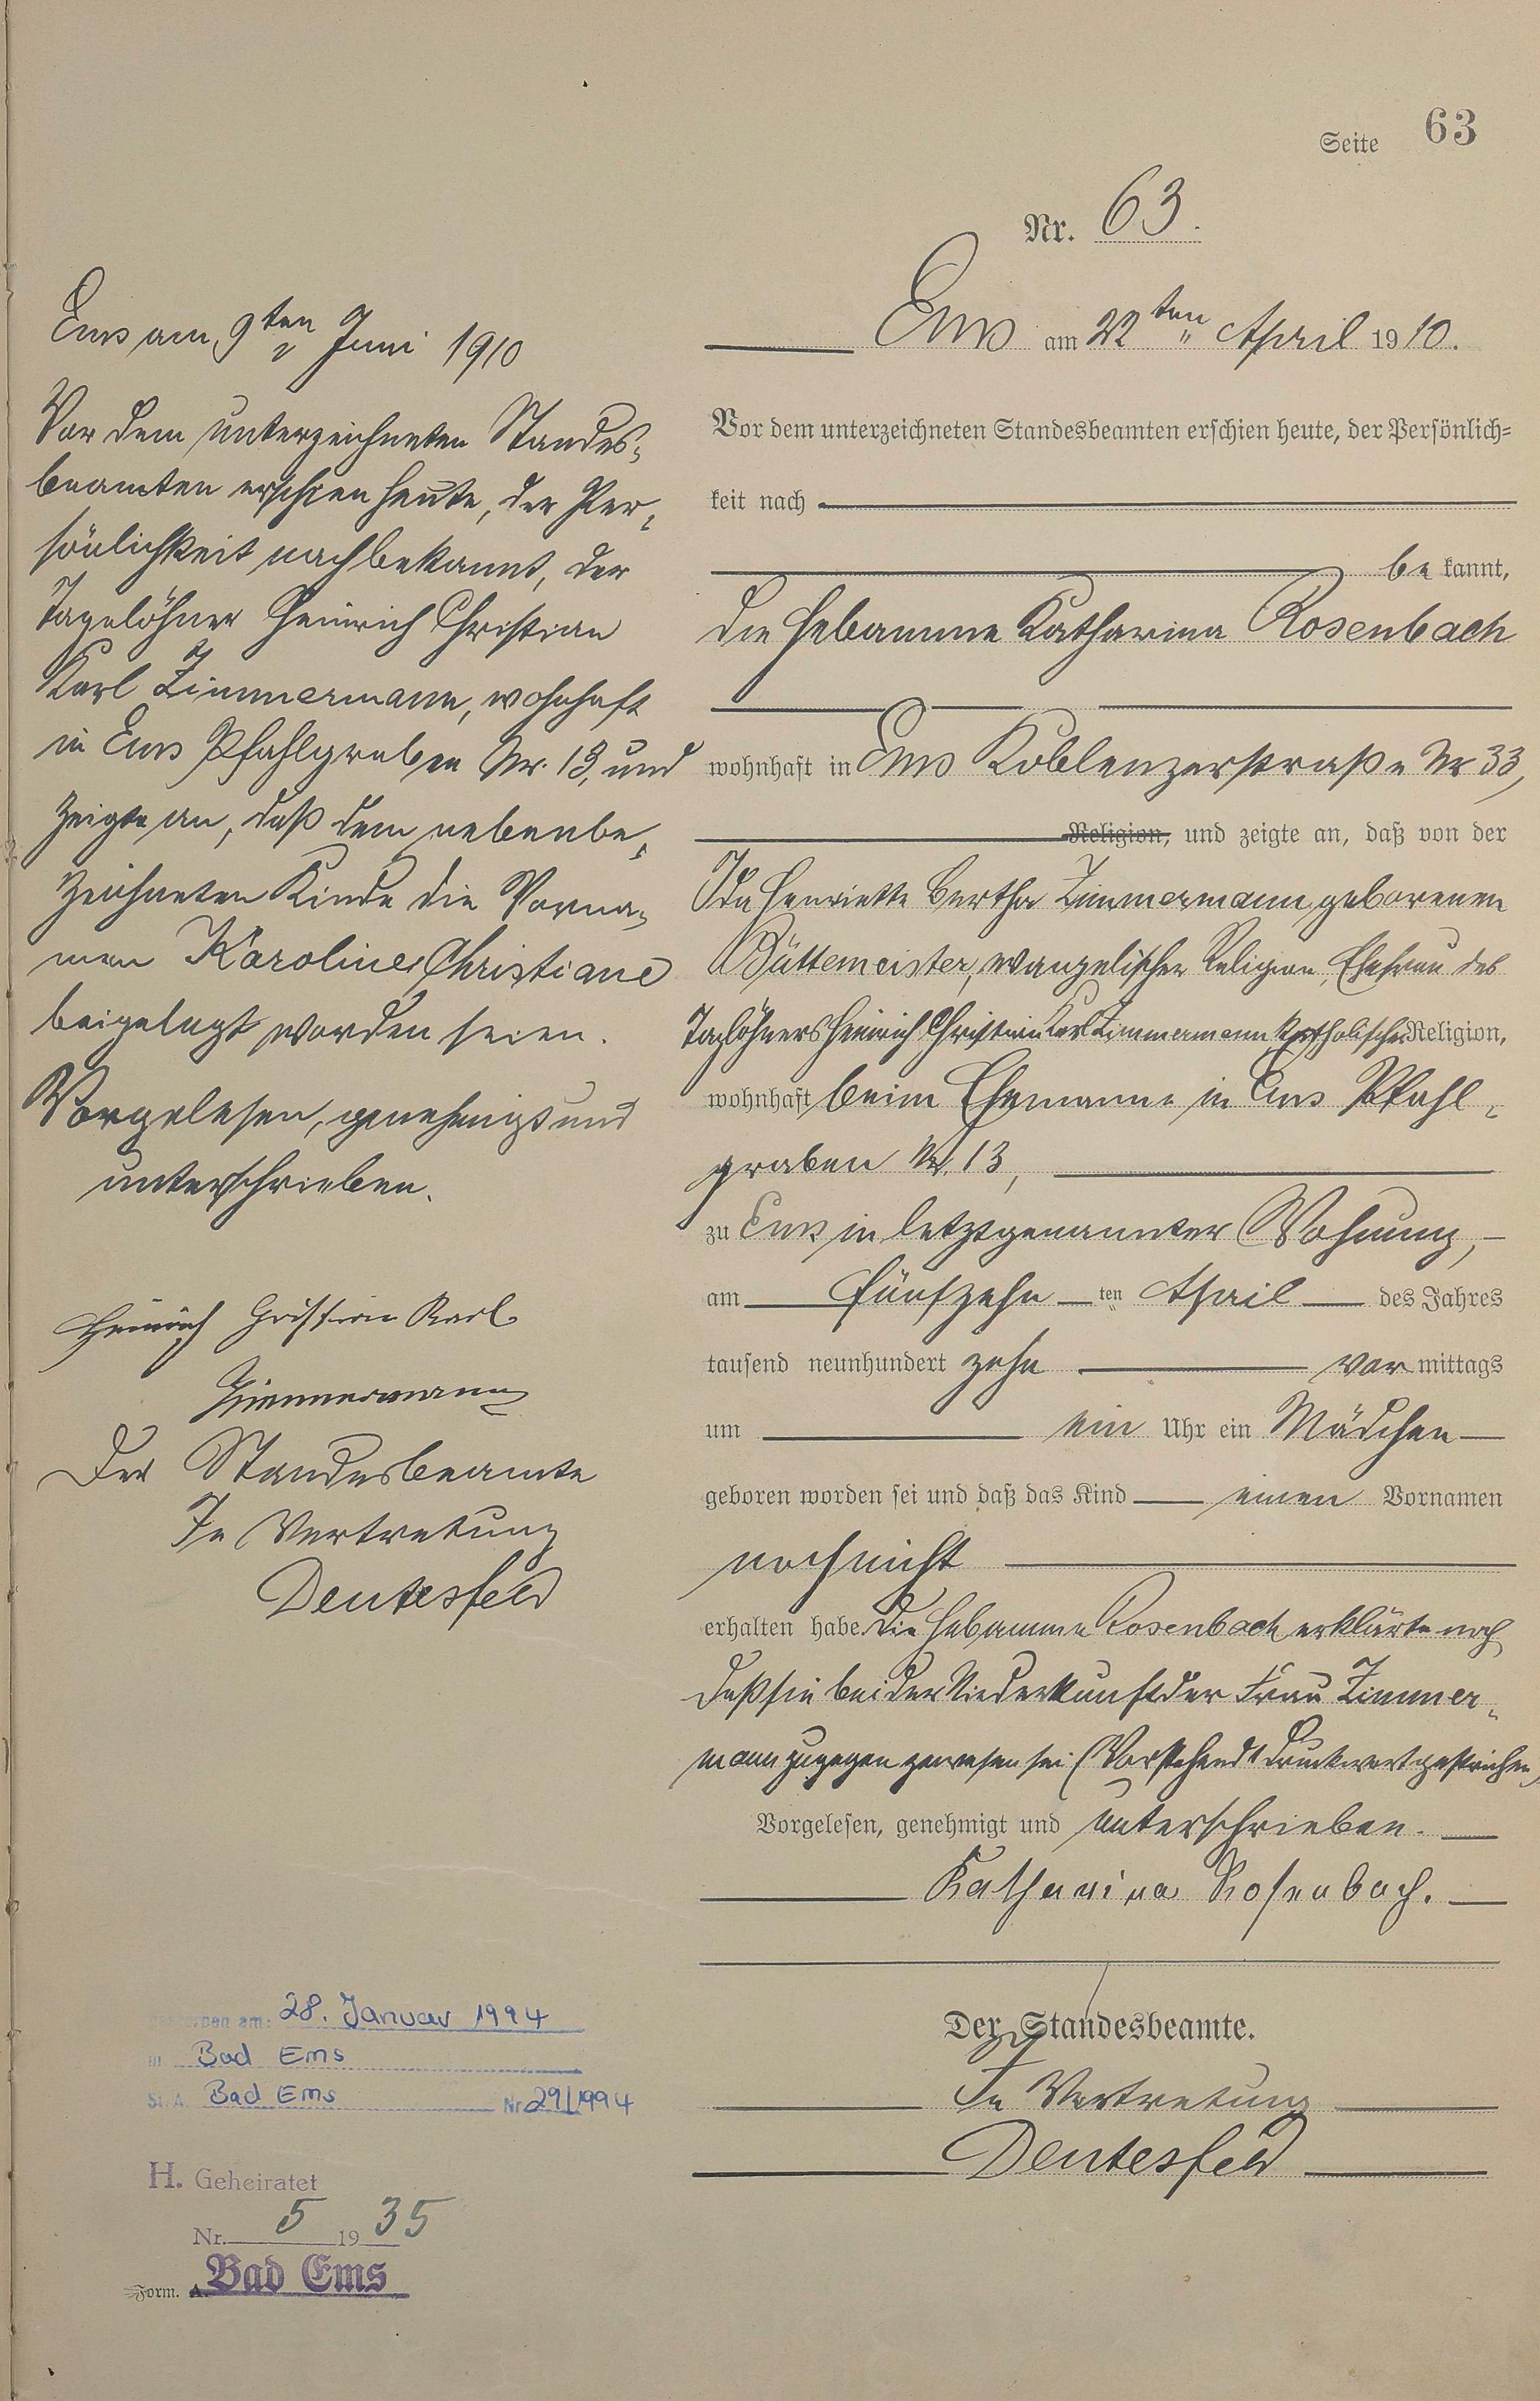 Seite 63
Nr. 63.
Ems am 22ten April 1910.
Vor dem unterzeichneten Standesbeamten erschien heute, der Persönlich=
keit nach
be kannt,
die Hebamme Katharina Rosenbach
wohnhaft in Ems Koblenzerstraße Nr 33,
Religion, und zeigte an, daß von der
Ida Henriette Bertha Zimmermann geborenen
Büttemeister, evangelischer Religion, Ehefrau des
Taglöhners Heinrich Christian Karl Zimmermann, katholischer Religion,
wohnhaft beim Ehemanne in Ems Pfahl=
graben Nr. 13,
zu Ems in letztgenannter Wohnung,
am fünfzehn ten April des Jahres
tausend neunhundert zehn vor mittags
um ein Uhr ein Mädchen
geboren worden sei und daß das Kind einen Vornamen
noch nicht
erhalten habe. Die Hebamme Rosenbach erklärte noch
daß sie bei der Niederkunft der Frau Zimmer=
mann zugegen gewesen sei (Vorstehend 1 Druckwort gestrichen)
Vorgelesen, genehmigt und unterschrieben.
Katharina Rosenbach.
Der Standesbeamte.
In Vertretung
Deutesfeld
Ems am 9ten Juni 1910
Vor dem unterzeichneten Standes=
beamten erschien heute, der Per=
sönlichkeit nach bekannt, der
Tagelöhner Heinrich Christian
Karl Zimmermann, wohnhaft
in Ems Pfahlgraben Nr. 13, und
zeigte an, daß dem nebenbe=
zeichneten Kinde die Vorna=
men Karoline Christiane
beigelegt worden seien.
Vorgelesen, genehmigt und
unterschrieben.
Heinrich Christian Karl
Zimmermann
Der Standesbeamte
In Vertretung
Deutesfeld
am: 28. Januar 1994
in Bad Ems
St. A. Bad Ems Nr 29/1994
H. Geheiratet
Nr. 5 1935
Form. A. Bad Ems